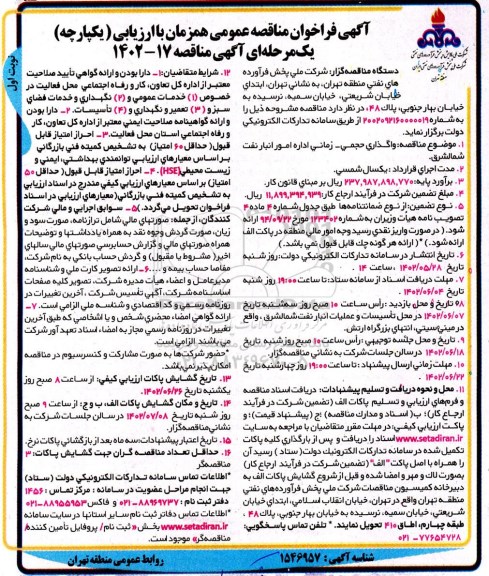 آگهی فراخوان مناقصه عمومی همزمان با ارزیابی (یکپارچه)
یک مرحله‌ای آگهی مناقصه ۱۷-۱۴۰۲
نوبت اول
دستگاه مناقصه‌گزار: شرکت ملی پخش فرآورده
های نفتی منطقه تهران، به نشانی تهران، ابتدای
خیابان شریعتی، خیابان سمیه، نرسیده به
خیابان بهار جنوبی، پلاک ۴۸، در نظر دارد مناقصه مشروحه ذیل را
از طریق سامانه تدارکات الکترونیکی
دولت برگزار نماید.
۱. موضوع مناقصه: واگذاری حجمی- زمانی اداره امور انبار نفت
شمالشرق.
۲. مدت اجرای قرارداد: یکسال شمسی.
۳. برآورد پایه: ۲۳۷,۹۸۷,۸۹۸,۷۷۰ ریال بر مبنای قانون کار.
۴. مبلغ تضمین شرکت در فرآیند ارجاع کار: ۱۱,۸۹۹,۳۹۴,۹۳۹ ریال.
۵. نوع تضمین: از نوع ضمانتنامه‌ها طبق جدول شماره ۴ ماده ۴
تصویب نامه هیأت وزیران به شماره ۱۲۳۴۰۲ مورخ ۹۴/۰۹/۲۲ ارائه
شود. (در صورت واریز نقدی رسید وجه امور مالی منطقه در پاکت الف
ارائه شود.) *(ارائه هر گونه چک قابل قبول نمی باشد.)
۶. تاریخ انتشار در سامانه تدارکات الکترونیکی دولت: روز شنبه
تاریخ ۱۴۰۲/۰۵/۲۸ ، ساعت ۱۴ .
۷. مهلت دریافت اسناد از سامانه ستاد: تا ساعت ۱۹:۰۰ روز شنبه
تاریخ ۱۴۰۲/۰۶/۰۴ .
۸. تاریخ و محل بازدید: رأس ساعت ۱۰ صبح روز سه‌شنبه تاریخ
۱۴۰۲/۰۶/۰۷ در محل تأسیسات و عملیات انبار نفت شمالشرق، واقع
در مینی‌سیتی، انتهای بزرگراه ارتش.
۹. تاریخ و محل جلسه توجیهی: رأس ساعت ۱۰ صبح روز شنبه تاریخ
۱۴۰۲/۰۶/۱۸ در سالن جلسات شرکت به نشانی مناقصه‌گزار.
۱۰. مهلت زمانی ارسال پیشنهاد: تا ساعت ۱۹:۰۰ روز چهارشنبه تاریخ
۱۴۰۲/۰۶/۲۲.
۱۱. محل و نحوه دریافت و تسلیم پیشنهادات: دریافت اسناد مناقصه
و فرم‌های ارزیابی و تسلیم پاکات الف (تضمین شرکت در فرآیند
ارجاع کار): ب (اسناد و مدارک مناقصه) ج (پیشنهاد قیمت): و
پاکت ارزیابی کیفی: در مهلت مقرر متقاضیان با مراجعه به سایت
www.setadiran.ir اسناد را دریافت و پس از بارگذاری کلیه پاکات
تکمیل شده در سامانه تدارکات الکترونیک دولت (ستاد) رسید آن
را همراه با اصل پاکت "الف" (تضمین شرکت در فرآیند ارجاع کار)
بصورت لاک و مهر و امضا شده و قبل از شروع گشایش پاکات الف به
دبیرخانه کمیسیون مناقصات شرکت ملی پخش فرآورده‌های نفتی
منطقه تهران واقع در تهران، خیابان انقلاب اسلامی، ابتدای خیابان
شریعتی، خیابان سمیه، نرسیده به خیابان بهار جنوبی، پلاک ۴۸،
طبقه چهارم، اطاق ۴۱۰ تحویل نمایند. * تلفن تماس پاسخگویی:
۷۷۶۵۴۷۲۸ - ۰۲۱
۱۲. شرایط متقاضیان: ۱- دارا بودن و ارائه گواهی تأیید صلاحیت
معتبر از اداره کل تعاون، کار و رفاه اجتماعی محل فعالیت در
خصوص (۱) خدمات عمومی و (۲) نگهداری و خدمات فضای
سبز و (۳) تعمیر و نگهداری و (۴) تأسیسات. ۲- دارا بودن
و ارائه گواهینامه صلاحیت ایمنی معتبر از اداره کل تعاون، کار
و رفاه اجتماعی استان محل فعالیت. ۳- احراز امتیاز قابل
قبول (حداقل ۶۰ امتیاز) به تشخیص کمیته فنی بازرگانی
بر اساس معیارهای ارزیابی توانمندی بهداشتی، ایمنی و
زیست محیطی (HSE). ۴- احراز امتیاز قابل قبول (حداقل ۵۰
امتیاز) بر اساس معیارهای ارزیابی کیفی مندرج در اسناد ارزیابی
به تشخیص کمیته فنی بازرگانی (معیارهای ارزیابی در اسناد
فراخوان تحویل می‌گردد.) ۵- سوابق اجرایی و مالی شرکت
کنندگان، از جمله: صورتهای مالی شامل ترازنامه، صورت سود و
زیان، صورت گردش وجوه نقد به همراه یادداشتها و توضیحات
همراه صورتهای مالی و گزارش حسابرسی صورتهای مالی سالهای
اخیر (مشروط یا مقبول) و گردش حساب بانکی به نام شرکت،
مفاصا حساب بیمه و .... ۶- ارائه تصویر کارت ملی و شناسنامه
مدیرعامل و اعضاء هیأت مدیره شرکت، تصویر کلیه صفحات
اساسنامه شرکت، آگهی تأسیس شرکت، آخرین تغییرات در
روزنامه رسمی و کد اقتصادی و شناسه ملی الزامی است. ۷-
ارائه گواهی امضاء محضری شخص و یا اشخاصی که طبق آخرین
تغییرات در روزنامه رسمی مجاز به امضاء اسناد تعهد آور شرکت
می باشند الزامی است.
*حضور شرکت‌ها به صورت مشارکت و کنسرسیوم در مناقصه
امکان پذیر نمی‌باشد.
۱۳. تاریخ گشایش پاکات ارزیابی کیفی: از ساعت ۸ صبح روز
یکشنبه تاریخ ۱۴۰۲/۰۶/۲۶.
۱۴. تاریخ و مکان گشایش پاکات الف، ب و ج: از ساعت ۹ صبح
روز شنبه تاریخ ۱۴۰۲/۰۷/۰۸ در سالن جلسات شرکت به
نشانی مناقصه‌گزار.
۱۵. تاریخ اعتبار پیشنهادات: سه ماه بعد از بازگشائی پاکات نرخ.
۱۶. حداقل تعداد مناقصه گران جهت گشایش پاکات: ۳
مناقصه‌گر
*اطلاعات تماس سامانه تدارکات الکترونیکی دولت (ستاد)
جهت انجام مراحل عضویت در سامانه : مرکز تماس : ۱۴۵۶
دفتر ثبت نام : ۸۸۹۶۹۷۳۷ - ۰۲۱ و ۸۸۹۵۵۹۵۳ - ۰۲۱
اطلاعات تماس دفاتر ثبت نام سایر استانها در سایت سامانه
www.setadiran.ir بخش « ثبت نام/ پروفایل تأمین کننده/
مناقصه‌گر» موجود است.
شناسه آگهی : ۱۵۴۶۹۵۷
روابط عمومی منطقه تهران